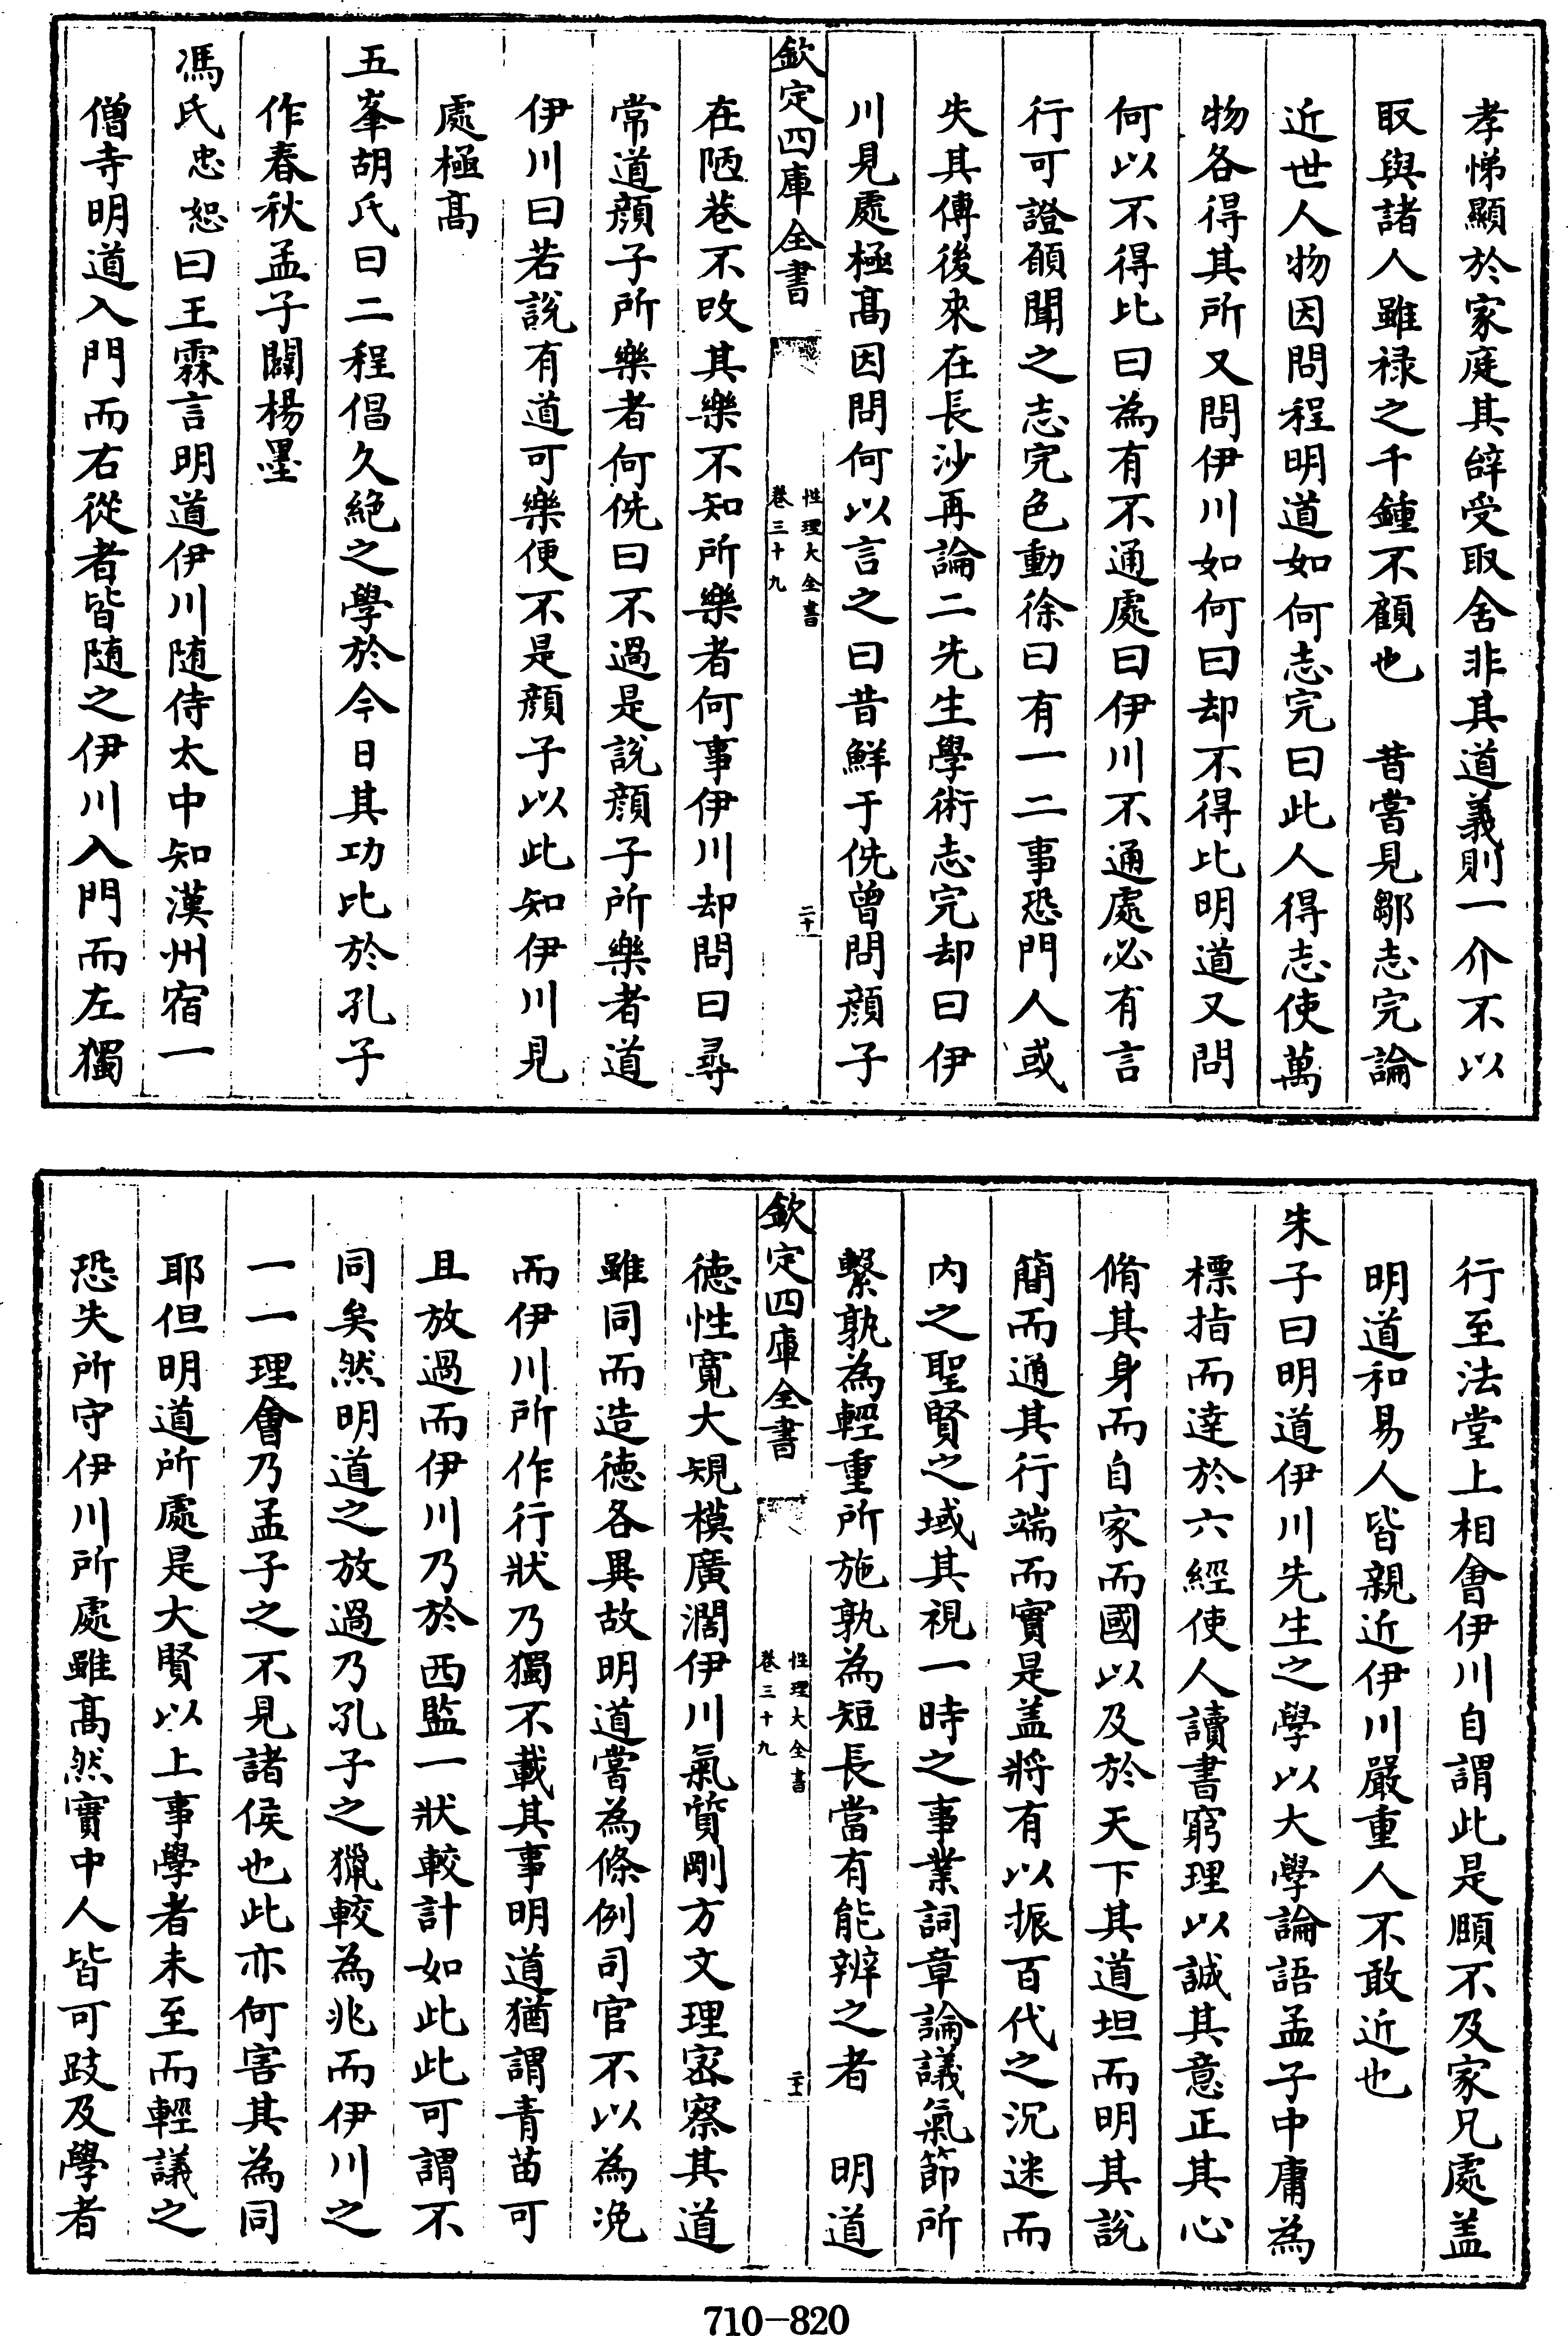 孝悌顯於家庭其辭受取舍非其道義則一介不以
取與諸人雖祿之千鍾不顧也　昔嘗見鄒志完論
近世人物因問程明道如何志完曰此人得志使萬
物各得其所又問伊川如何曰却不得比明道又問
何以不得比曰為有不通處曰伊川不通處必有言
行可證願聞之志完色動徐曰有一二事恐門人或
失其傳後來在長沙再論二先生學術志完却曰伊
川見處極髙因問何以言之曰昔鮮于侁曾問顔子
欽定四庫全書
性理大全書
卷三十九
二十
在陋巷不改其樂不知所樂者何事伊川却問曰尋
常道顔子所樂者何侁曰不過是說顔子所樂者道
伊川曰若說有道可樂便不是顔子以此知伊川見
處極髙
五峯胡氏曰二程倡久絶之學於今日其功比於孔子
作春秋孟子闢楊墨
馮氏忠恕曰王霖言明道伊川随侍太中知漢州宿一
僧寺明道入門而右從者皆随之伊川入門而左獨
行至法堂上相會伊川自謂此是頥不及家兄處盖
明道和易人皆親近伊川嚴重人不敢近也
朱子曰明道伊川先生之學以大學論語孟子中庸為
標指而達於六經使人讀書窮理以誠其意正其心
脩其身而自家而國以及於天下其道坦而明其說
簡而通其行端而實是盖將有以振百代之沉迷而
内之聖賢之域其視一時之事業詞章論議氣節所
繫孰為輕重所施孰為短長當有能辨之者　明道
欽定四庫全書
性理大全書
卷三十九
二十一
徳性寛大規模廣濶伊川氣質剛方文理宻察其道
雖同而造徳各異故明道嘗為條例司官不以為浼
而伊川所作行狀乃獨不載其事明道猶謂青苗可
且放過而伊川乃於西監一狀較計如此此可謂不
同矣然明道之放過乃孔子之獵較為兆而伊川之
一一理㑹乃孟子之不見諸侯也此亦何害其為同
耶但明道所處是大賢以上事學者未至而輕議之
恐失所守伊川所處雖髙然實中人皆可跂及學者
710-820